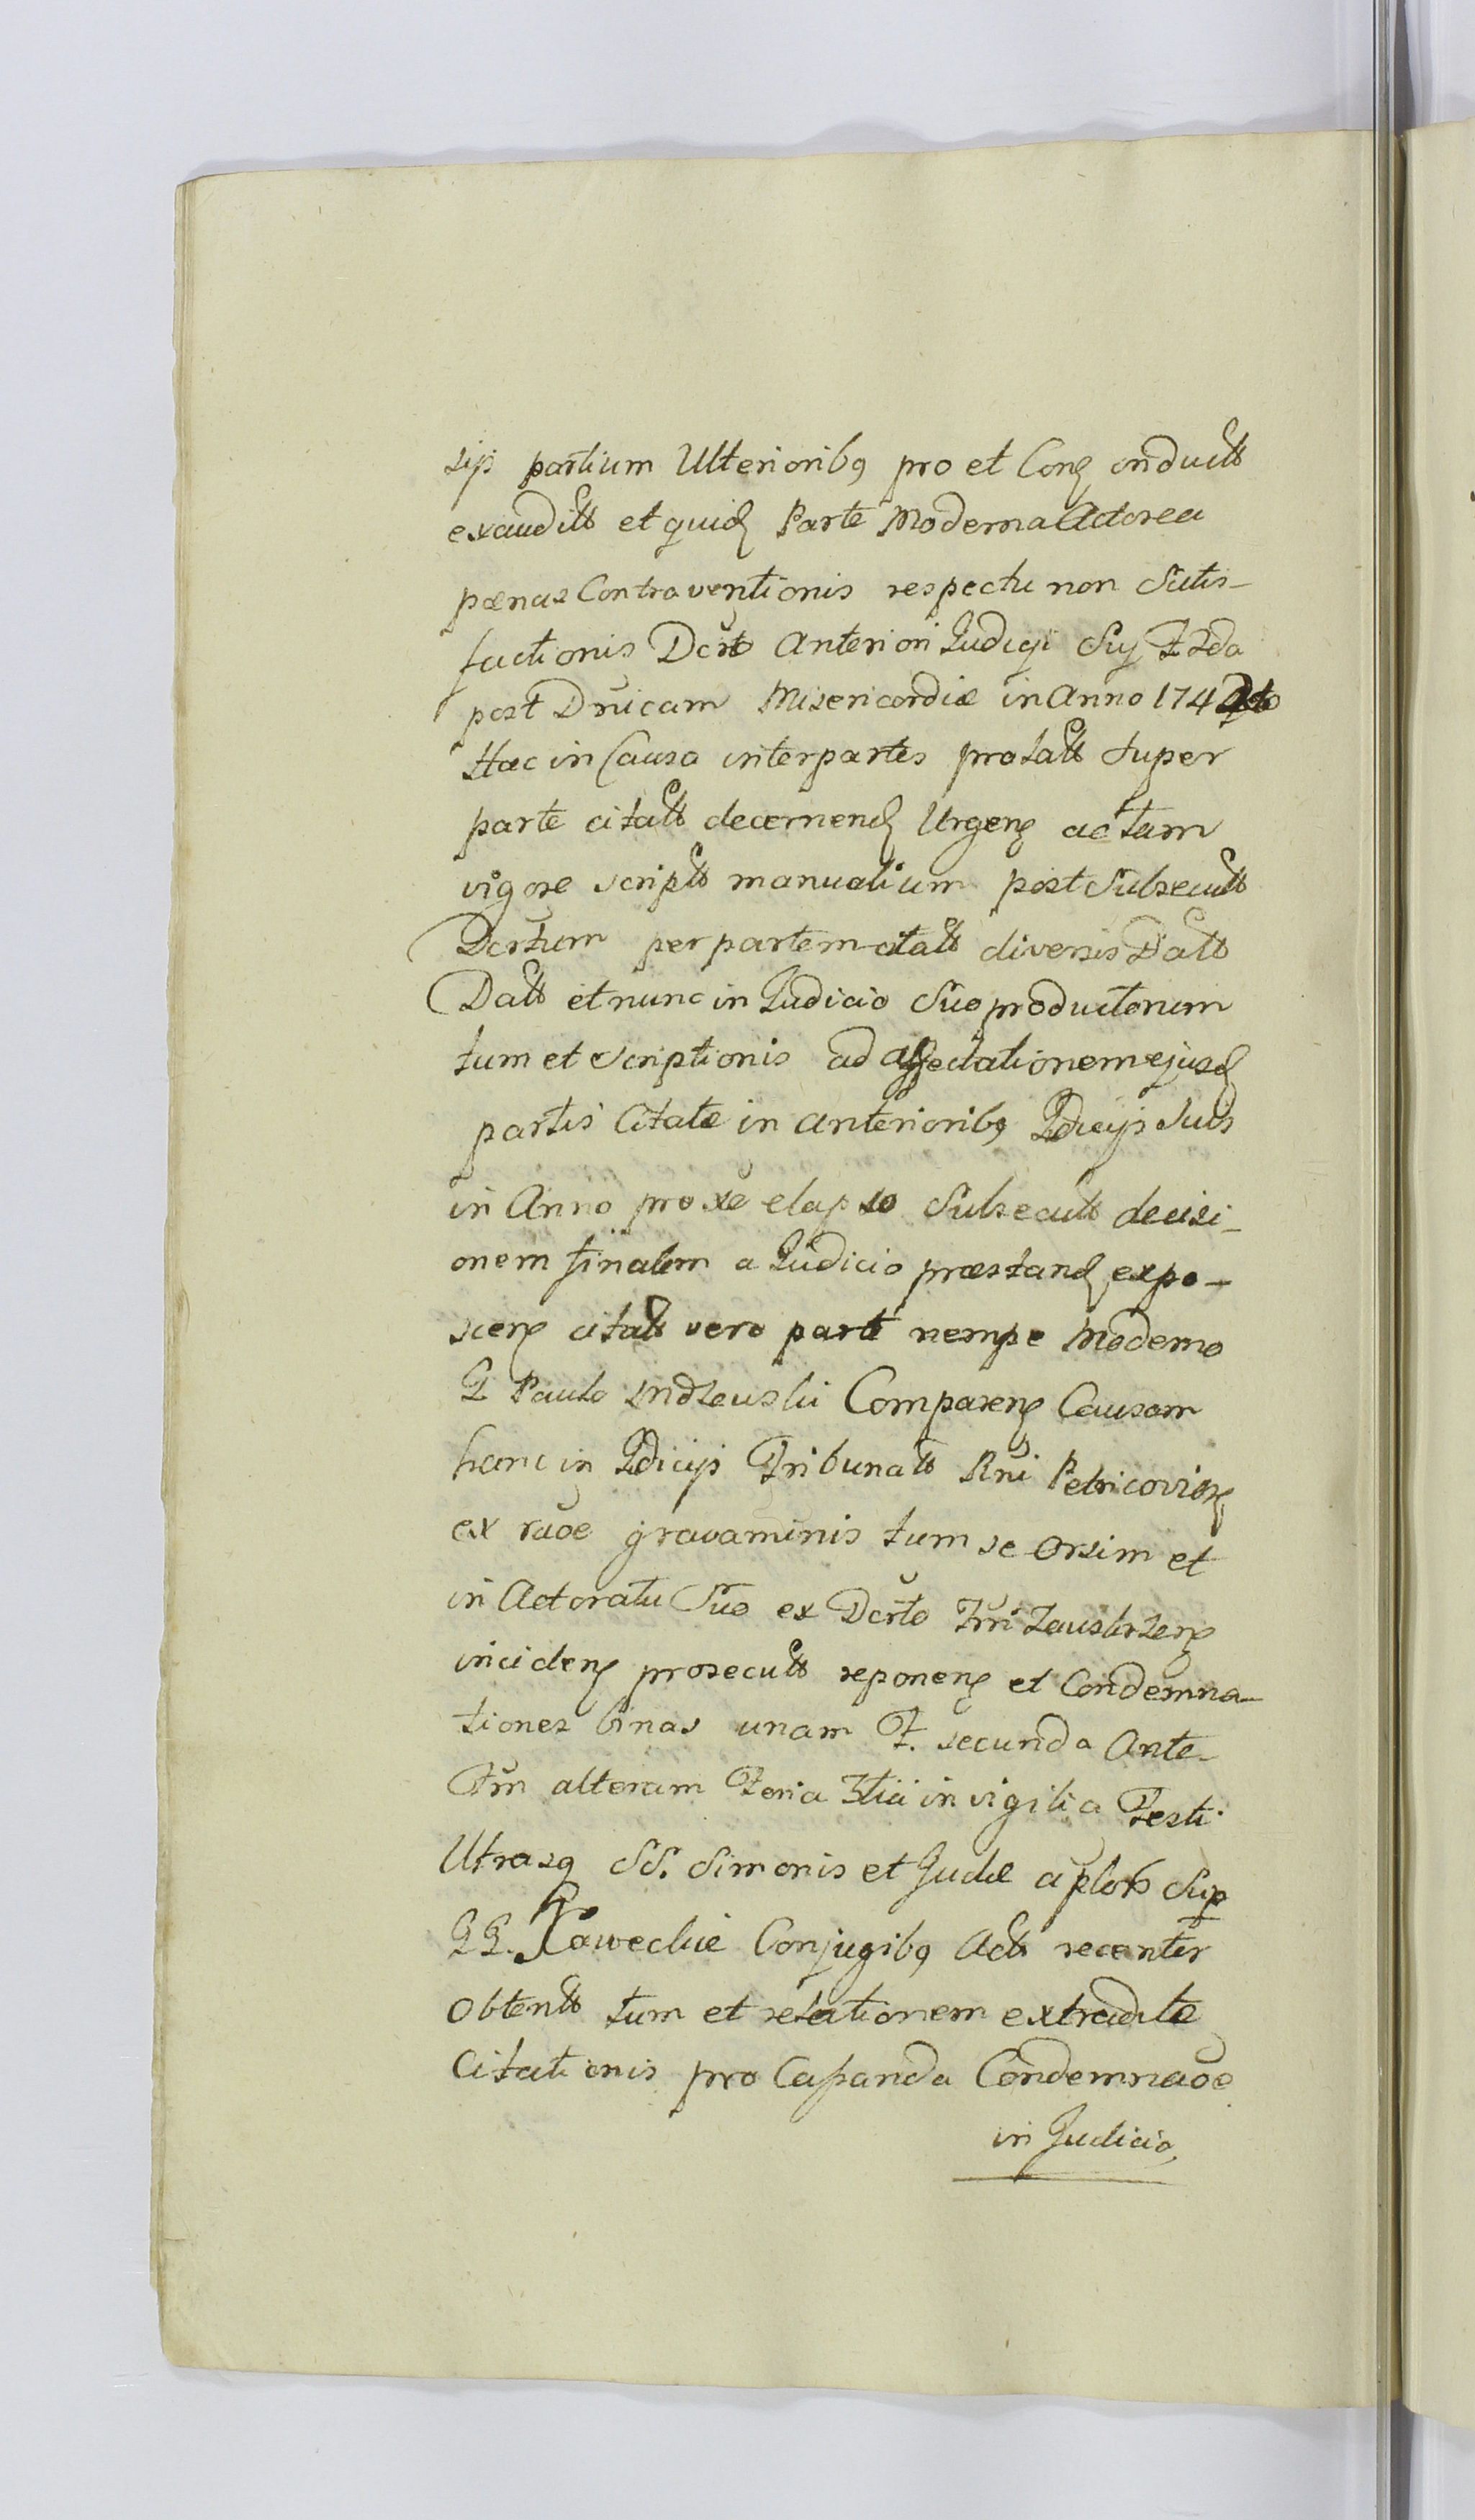 sijs partium Ulterioribq pro et Conz onductt
exauditt et quidz Parte Moderna Actorea
pœnas Contraventionis respectu non Satis-
factionis Dcrto Anteriori Judicÿ Suÿ F 2da
post Dnicam Misericordiæ in Anno 174
Hac in Causa inter partes prolatt super
parte citatt decernendz Urgenz actam
vigore scriptt manualium post Subsecutt
Dcrtum per partem citatt diversis Datt
Datt et nunc in Judicio Suo productorum
tum et Scriptionis ad affectationem ejusdz
partis Citatæ in anterioribq Jdicÿs Suis
in Anno proxe elapso Subsecutt decisi-
onem finalem a Judicio præstandz expo-
scenz citatt vero parte nempe Moderno
G Paulo Comparenz Causam
hanc in Jdicÿs Tribunatt Rni Petricovienz
ex raoe gravaminis tum seorsim et
in Actoratu Suo ex Dcrto
incidenz prosecutt reponenz et Condemna-
tiones binas unam F. secunda Ante-
alteram Feria 3tia in vigilia Festi
Utrasq SS. Simonis et Judæ aplorb Sup
GG. Conjugibq Actt recenter
obtentt tum et relationem extraditæ
Citationis pro Capanda Condemnaoe
in Judicio,